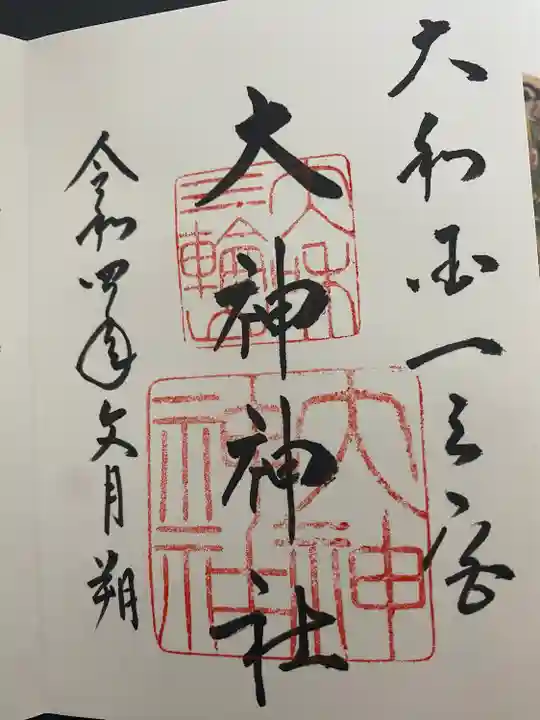 大和国一之宮
大神神社
令和四年文月朔
大和
三輪山
大神神社